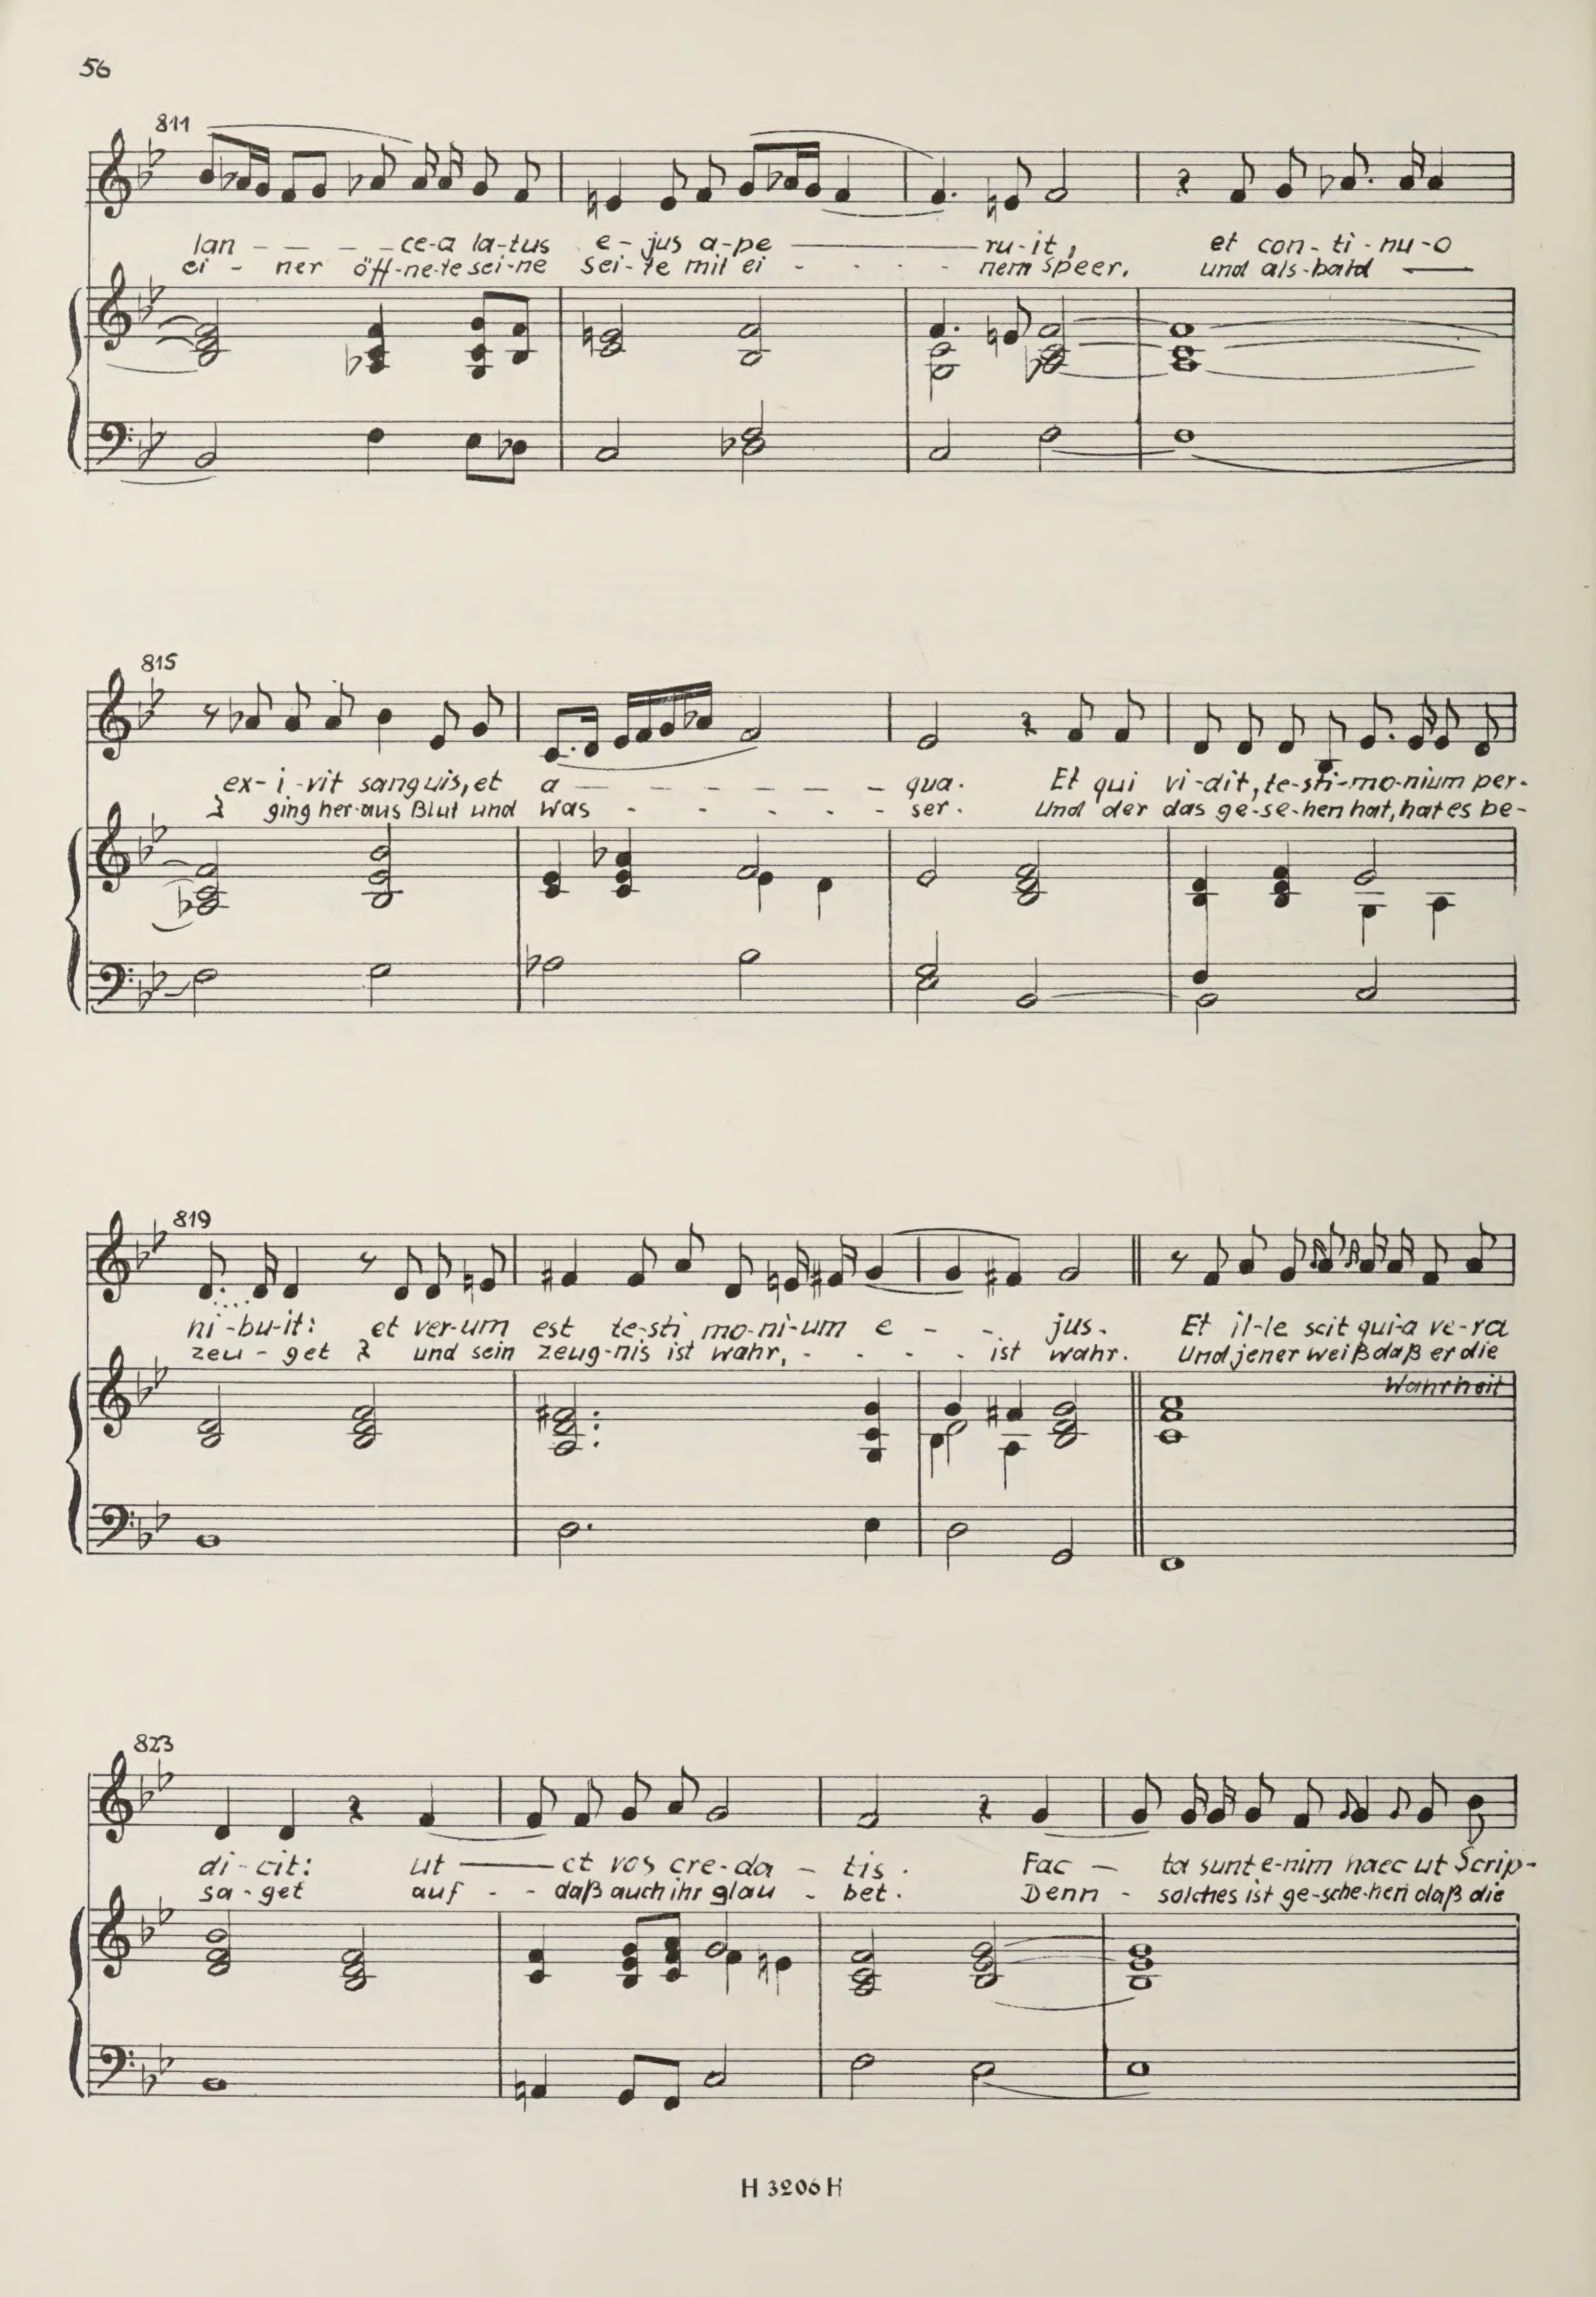 56
811
lan - - - - ce-a la-tus e-jus a-pe ——— ru-it, et con-ti-nu-o
ei - ner öff-ne-te sei-ne Sei-te mit ei - - - - nem Speer. und als-bald —
815
ex-i-vit sanguis, et a - - - - - - qua. Et qui vi-dit, te-sti-mo-nium per-
ging her-aus Blut und Was - - - - - ser. Und der das ge-se-hen hat, hat es be-
819
hi-bu-it: et ver-um est te-sti mo-ni-um e - - jus. Et il-le scit qui-a ve-ra
zeu - get und sein Zeug-nis ist wahr, - - - - ist wahr. Und jener weiß daß er die
Wahrheit
823
di-cit: ut —— et vos cre-da - tis. Fac — ta sunt e-nim haec ut Scrip-
sa-get auf - - daß auch ihr glau - bet. Denn - solches ist ge-sche-hen daß die
H 3206 H